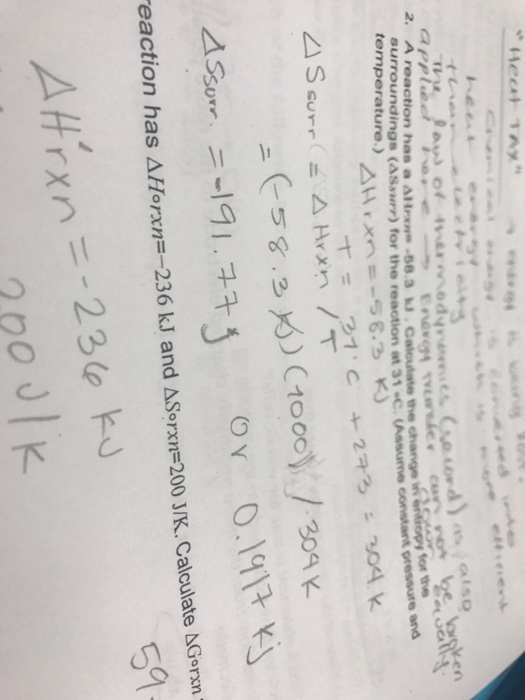 "Heat Tax" → energy is being
chemical energy is converted into
heat energy which is more efficient
than electricity
The law of thermodynamics (second) is also
applied here → Energy transfer can not be broken
down equally.
2. A reaction has a ΔHrxn= -58.3 kJ. Calculate the change in entropy for the
surroundings (ΔSsurr) for the reaction at 31 °C. (Assume constant pressure and
temperature.)
ΔHrxn = -58.3 KJ
T = 31°C + 273 = 304 K
ΔSsurr = ΔHrxn / T
= (-58.3 KJ) (1000) / 304 K
ΔSsurr. = -191.77 J or 0.1917 Kj
eaction has ΔH°rxn=-236 kJ and ΔS°rxn=200 J/K. Calculate ΔG°rxn
ΔH°rxn = -236 KJ
200 J/K
59